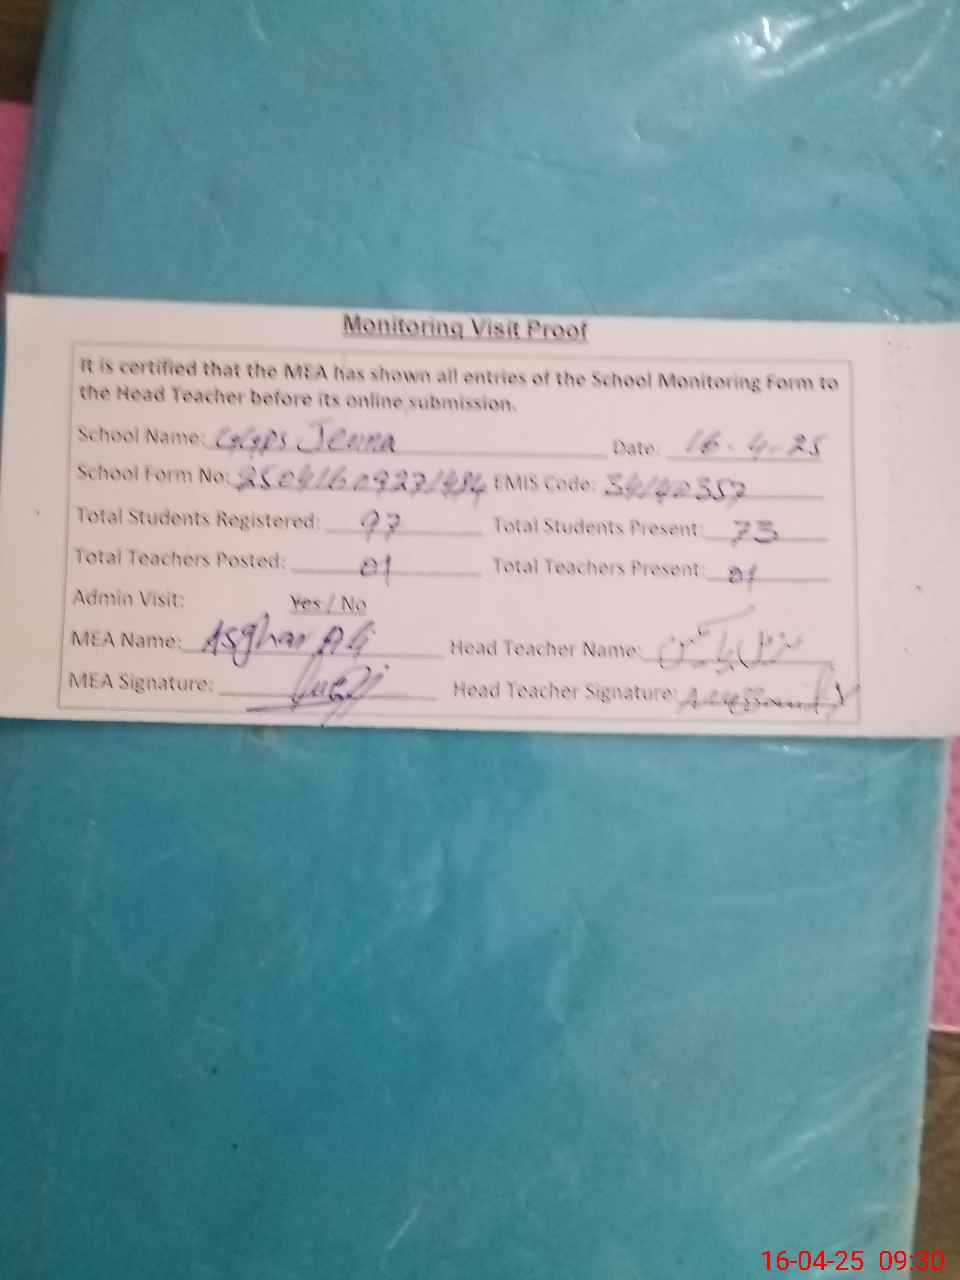 Monitoring Visit Proof
It is certified that the MEA has shown all entries of the School Monitoring Form to
the Head Teacher before its online submission.
School Name: GGPS Jenna Date: 16.4.25
School Form No: EMIS Code: 34140357
Total Students Registered: 97 Total Students Present: 73
Total Teachers Posted: 01 Total Teachers Present: 01
Admin Visit: Yes / No
MEA Name: Asghar Ali Head Teacher Name:
MEA Signature: Head Teacher Signature:
16-04-25 09:30